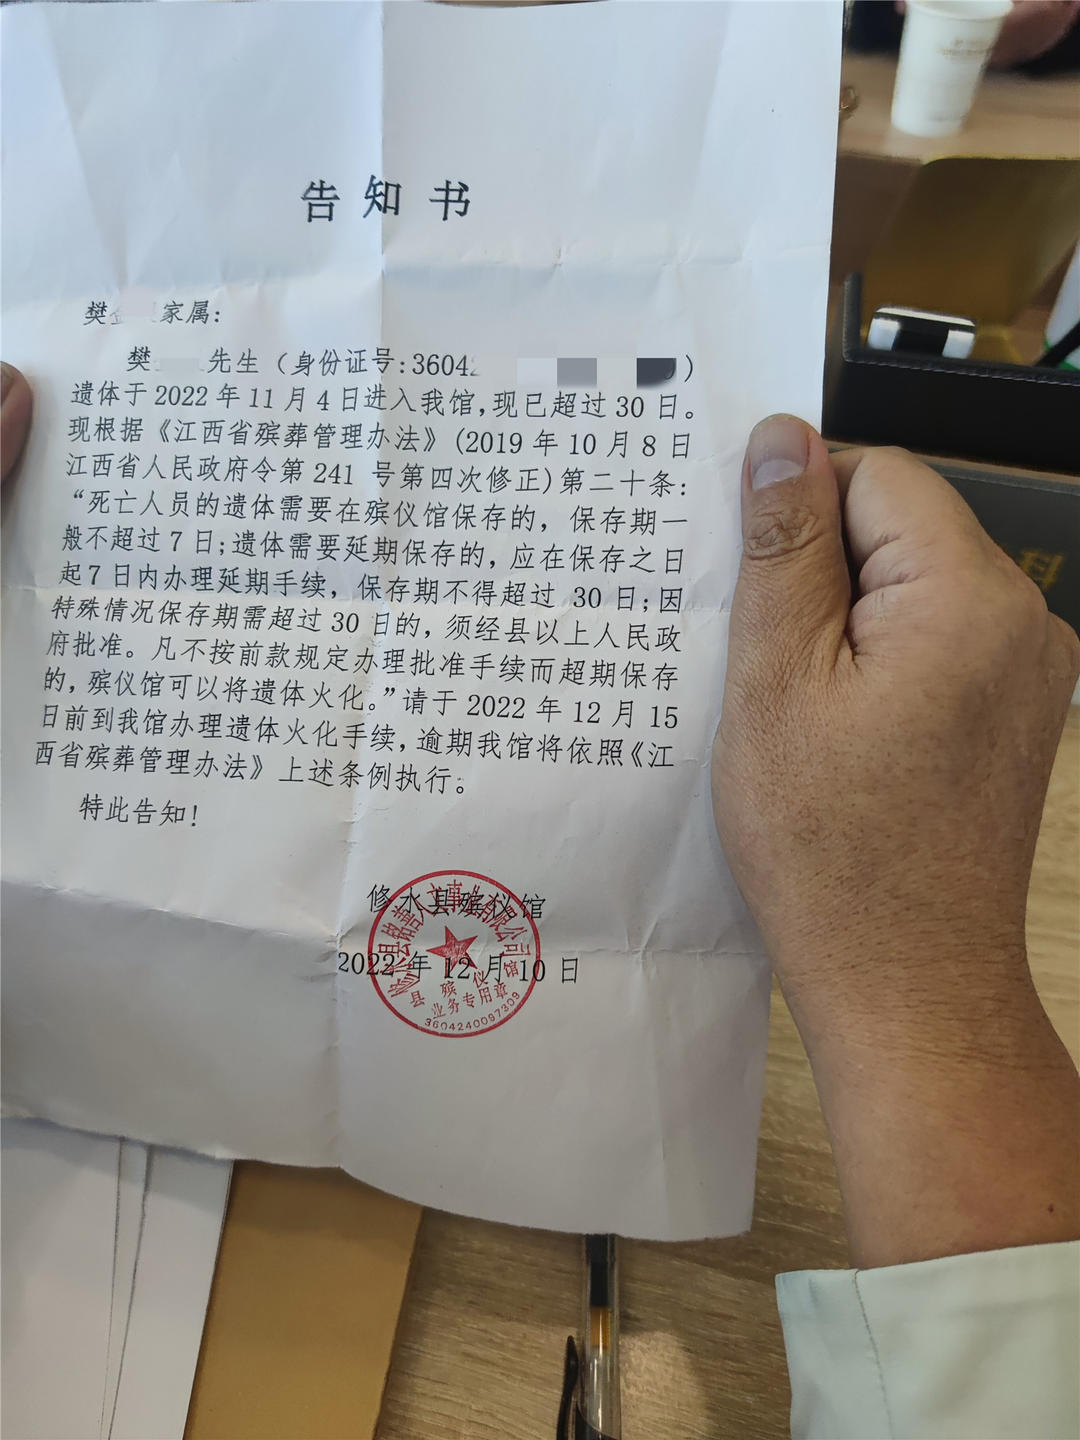 告知书
樊 家属:
樊 先生（身份证号:3604 )
遗体于 2022 年 11 月 4 日进入我馆,现已超过 30 日。
现根据《江西省殡葬管理办法》(2019 年 10 月 8 日
江西省人民政府令第 241 号第四次修正)第二十条:
“死亡人员的遗体需要在殡仪馆保存的，保存期一
般不超过 7 日;遗体需要延期保存的，应在保存之日
起 7 日内办理延期手续，保存期不得超过 30 日;因
特殊情况保存期需超过 30 日的，须经县以上人民政
府批准。凡不按前款规定办理批准手续而超期保存
的，殡仪馆可以将遗体火化。”请于 2022 年 12 月 15
日前到我馆办理遗体火化手续，逾期我馆将依照《江
西省殡葬管理办法》上述条例执行。
特此告知!
修水县殡仪馆
2022 年 12 月 10 日
县殡仪馆
业务专用章
3604240097309
科